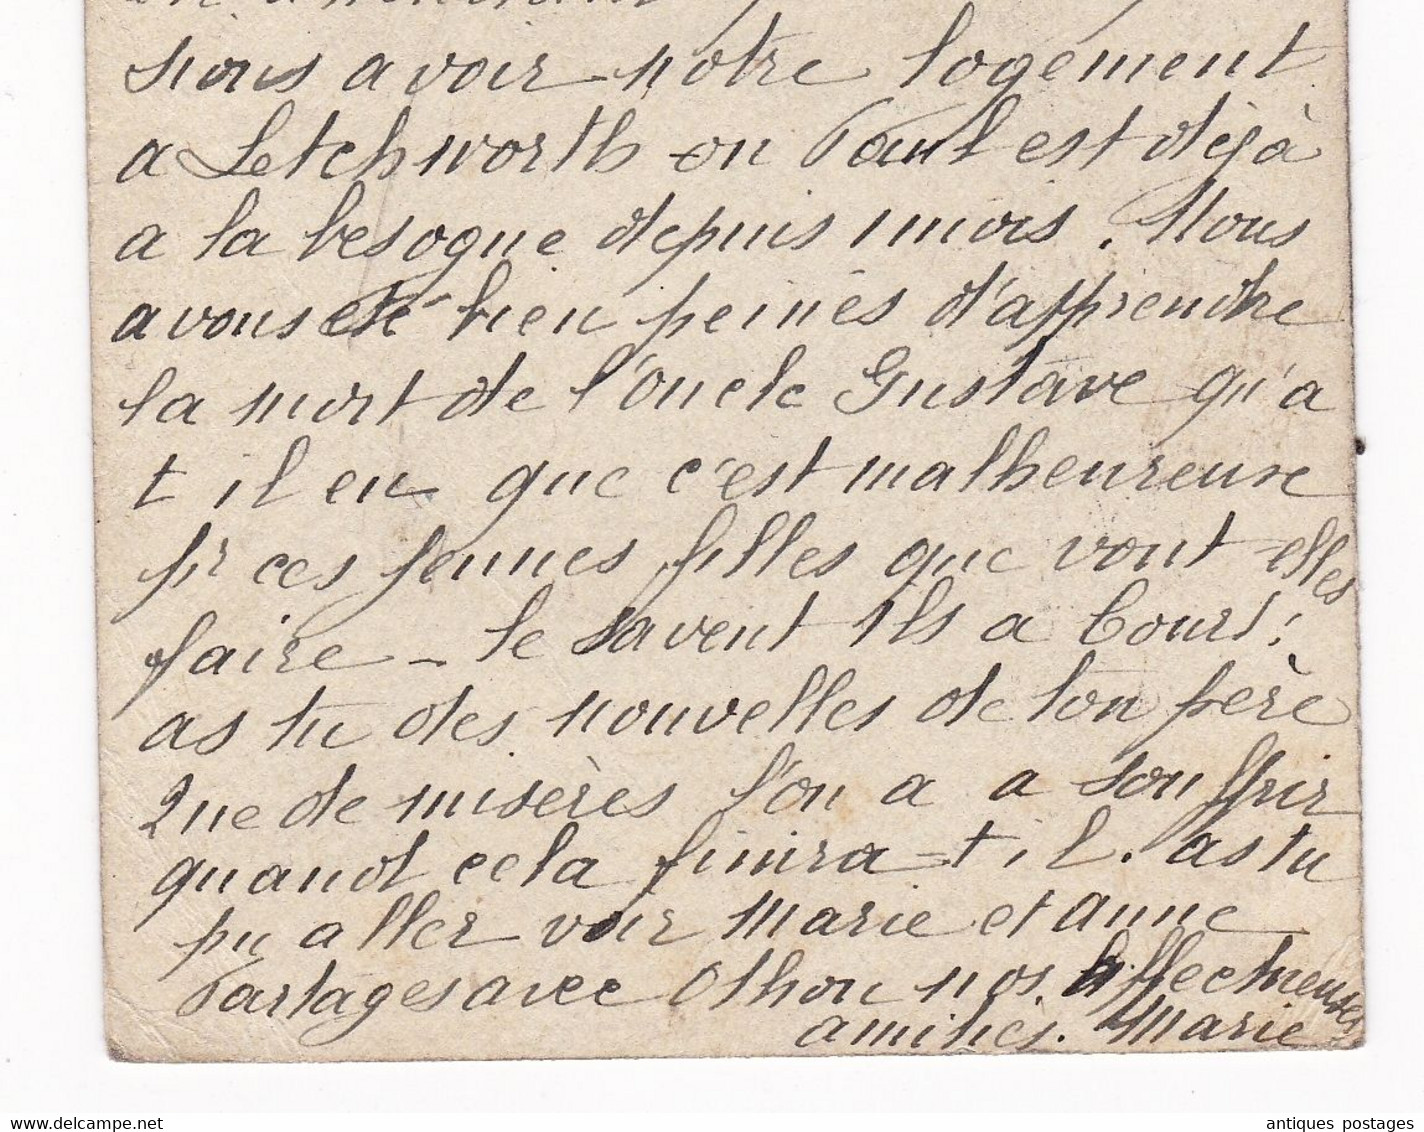 en attendant
nous avoir notre logement
a Letchworth ou Paul est déjà
a la besogne depuis 1 mois. Nous
avons été bien peinés d'apprendre
la mort de l'oncle Gustave qu'a
t il eu que c'est malheureuse
pr ces jeunes filles que vont elles
faire - le savent ils a Court?
as tu des nouvelles de ton père
Que de misères l'on a a souffrir
quand cela finira=t il. as tu
pu aller voir Marie et Anne
Partages avec Othon nos affectueuses
amitiés. Marie
antiques postages